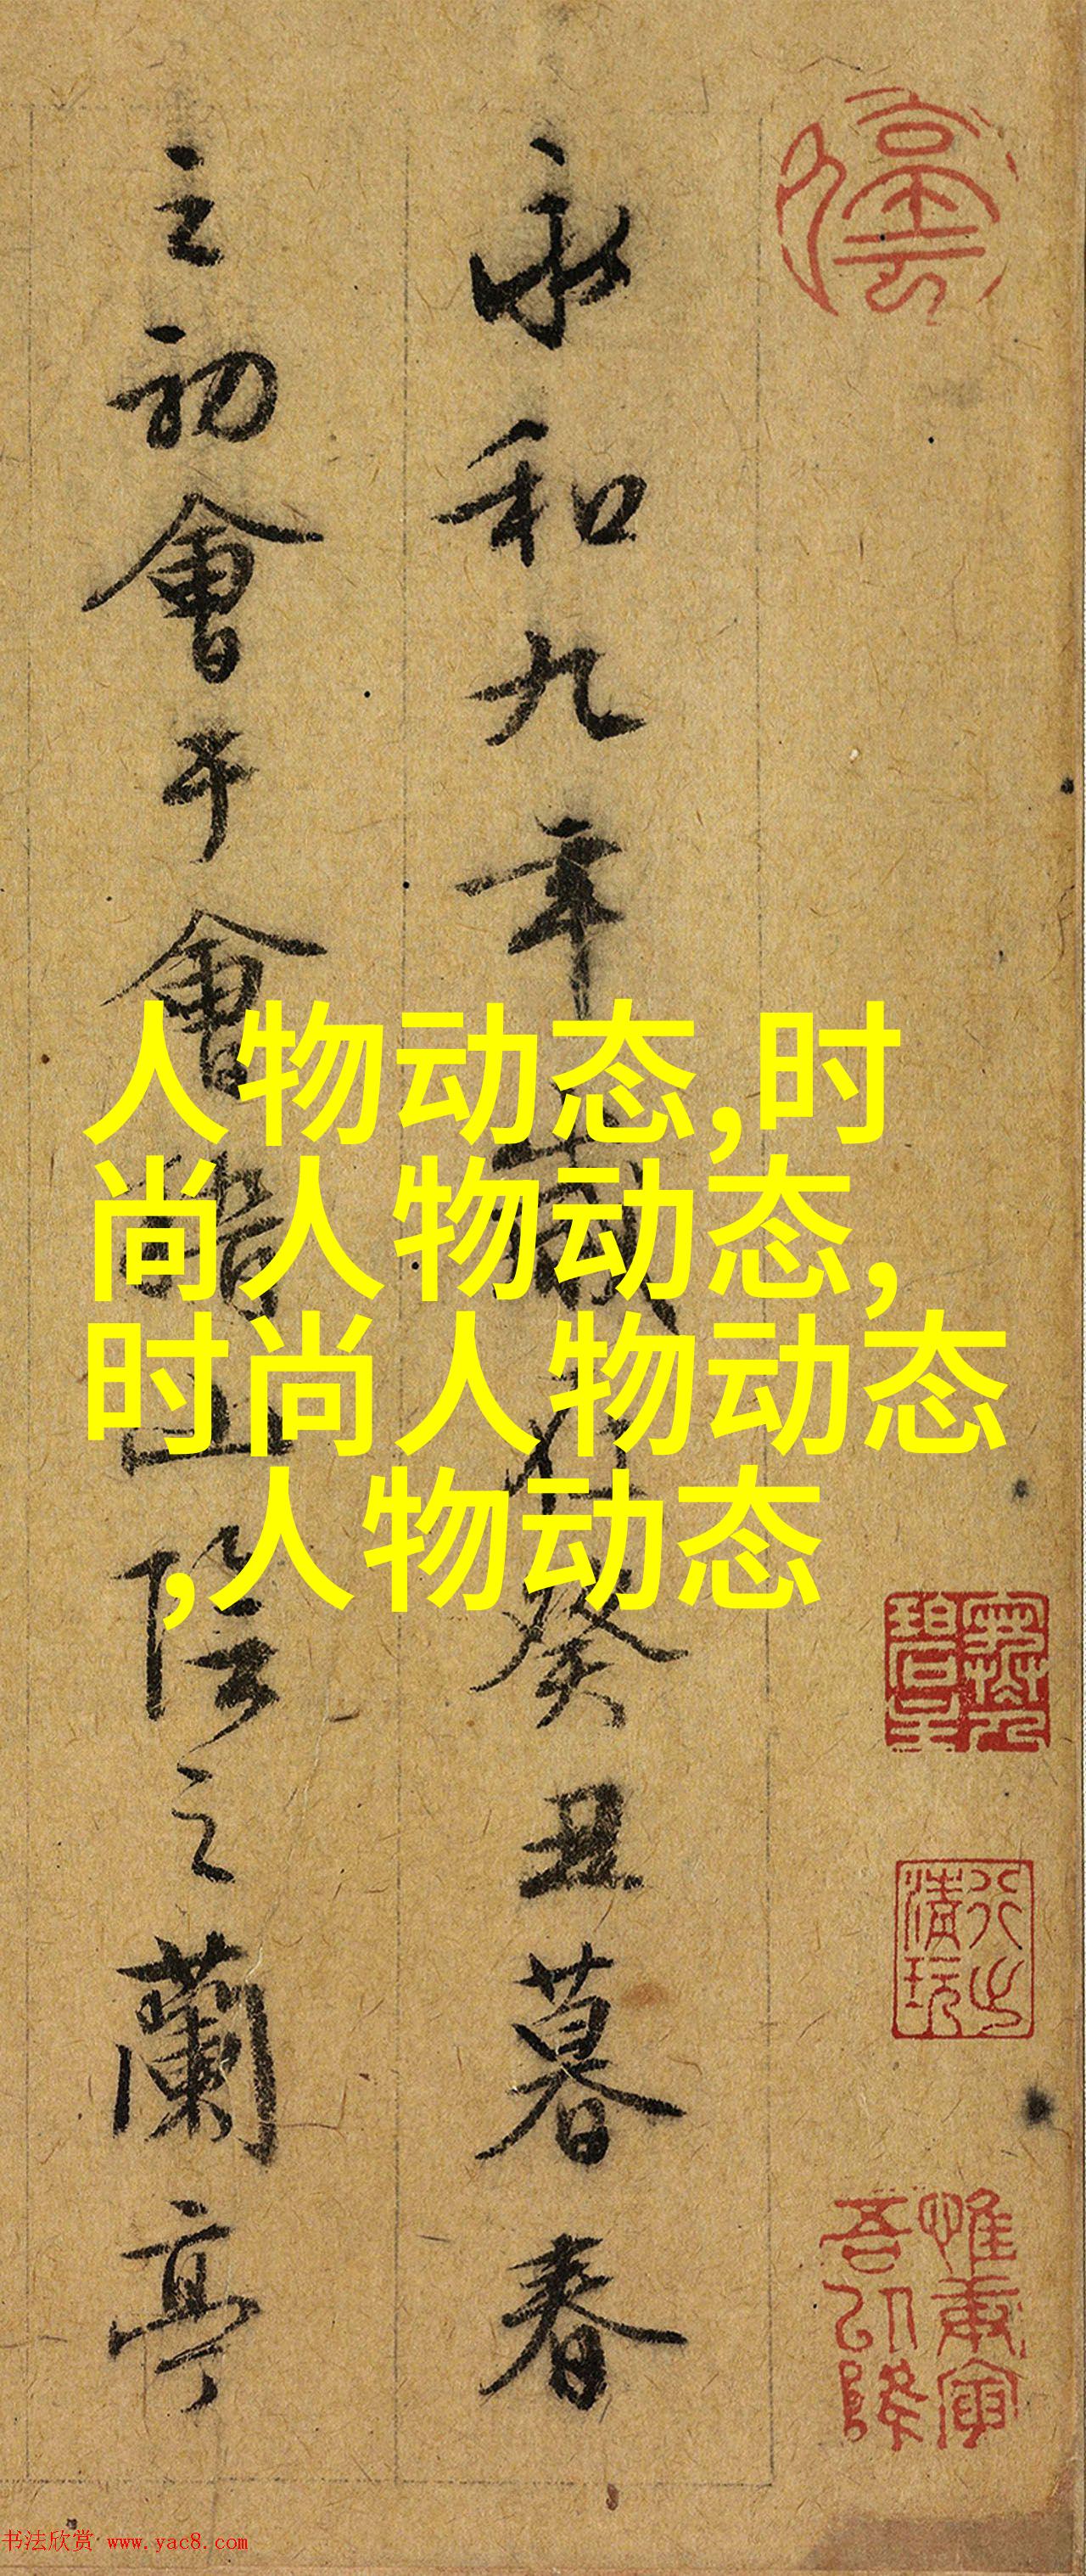 永和九年歲在癸丑暮春
之初會于會稽山陰之蘭亭
人物动态,时
尚人物动态,
时尚人物动态
,人物动态
清玩
惟庚寅
吾以降
书法欣赏 www.yac8.com